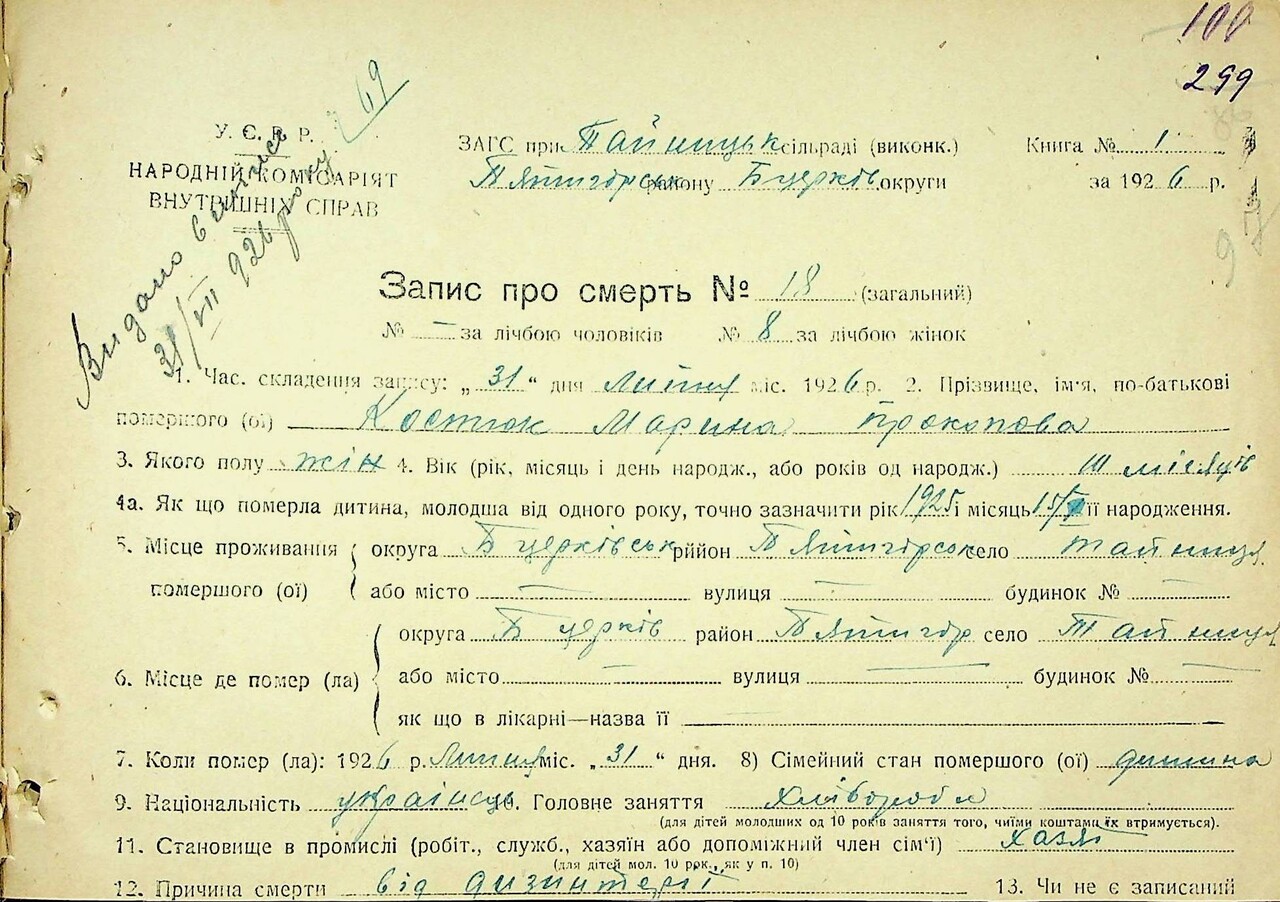 100
299
69
У. С. Р. Р.
НАРОДНІЙ КОМІСАРІЯТ
ВНУТРІШНІХ СПРАВ
Видано витяг
31/VII 926 року
ЗАГС при Тайницьк сільраді (виконк.)
Пятигорськ району Бцерків округи
Книга № 1
за 1926 р.
97
Запис про смерть № 18 (загальний)
№ — за лічбою чоловіків № 8 за лічбою жінок
1. Час. складення запису: „31“ дня липня міс. 1926 р. 2. Прізвище, ім'я, по-батькові
помершого (ої) Костюк Марина Прокопова
3. Якого полу жін 4. Вік (рік, місяць і день народж., або років од народж.) місяців
4а. Як що померла дитина, молодша від одного року, точно зазначити рік 1925 і місяць її народження.
5. Місце проживання помершого (ої) округа Бцерківськ район Пятигорськ село Тайниця
або місто — вулиця — будинок № —
6. Місце де помер (ла) округа Бцерків район Пятигор село Тайниця
або місто — вулиця — будинок № —
як що в лікарні—назва її —
7. Коли помер (ла): 1926 р. Липня міс. „31“ дня. 8) Сімейний стан помершого (ої) дитина
9. Національність українець. Головне заняття хлібороби
(для дітей молодших од 10 років заняття того, чиїми коштами їх втримується).
11. Становище в промислі (робіт., служб., хазяїн або допоміжний член сім'ї) хазяї
(для дітей мол. 10 рок., як у п. 10)
12. Причина смерти від дизинтерії 13. Чи не є записаний